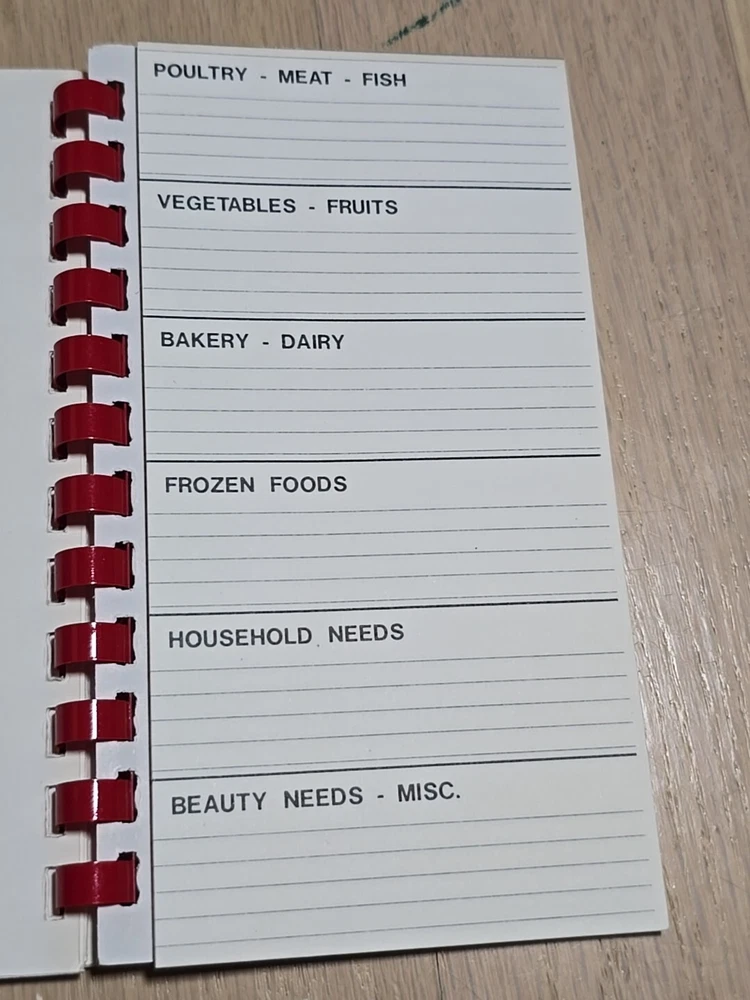 POULTRY - MEAT - FISH
VEGETABLES - FRUITS
BAKERY - DAIRY
FROZEN FOODS
HOUSEHOLD NEEDS
BEAUTY NEEDS - MISC.